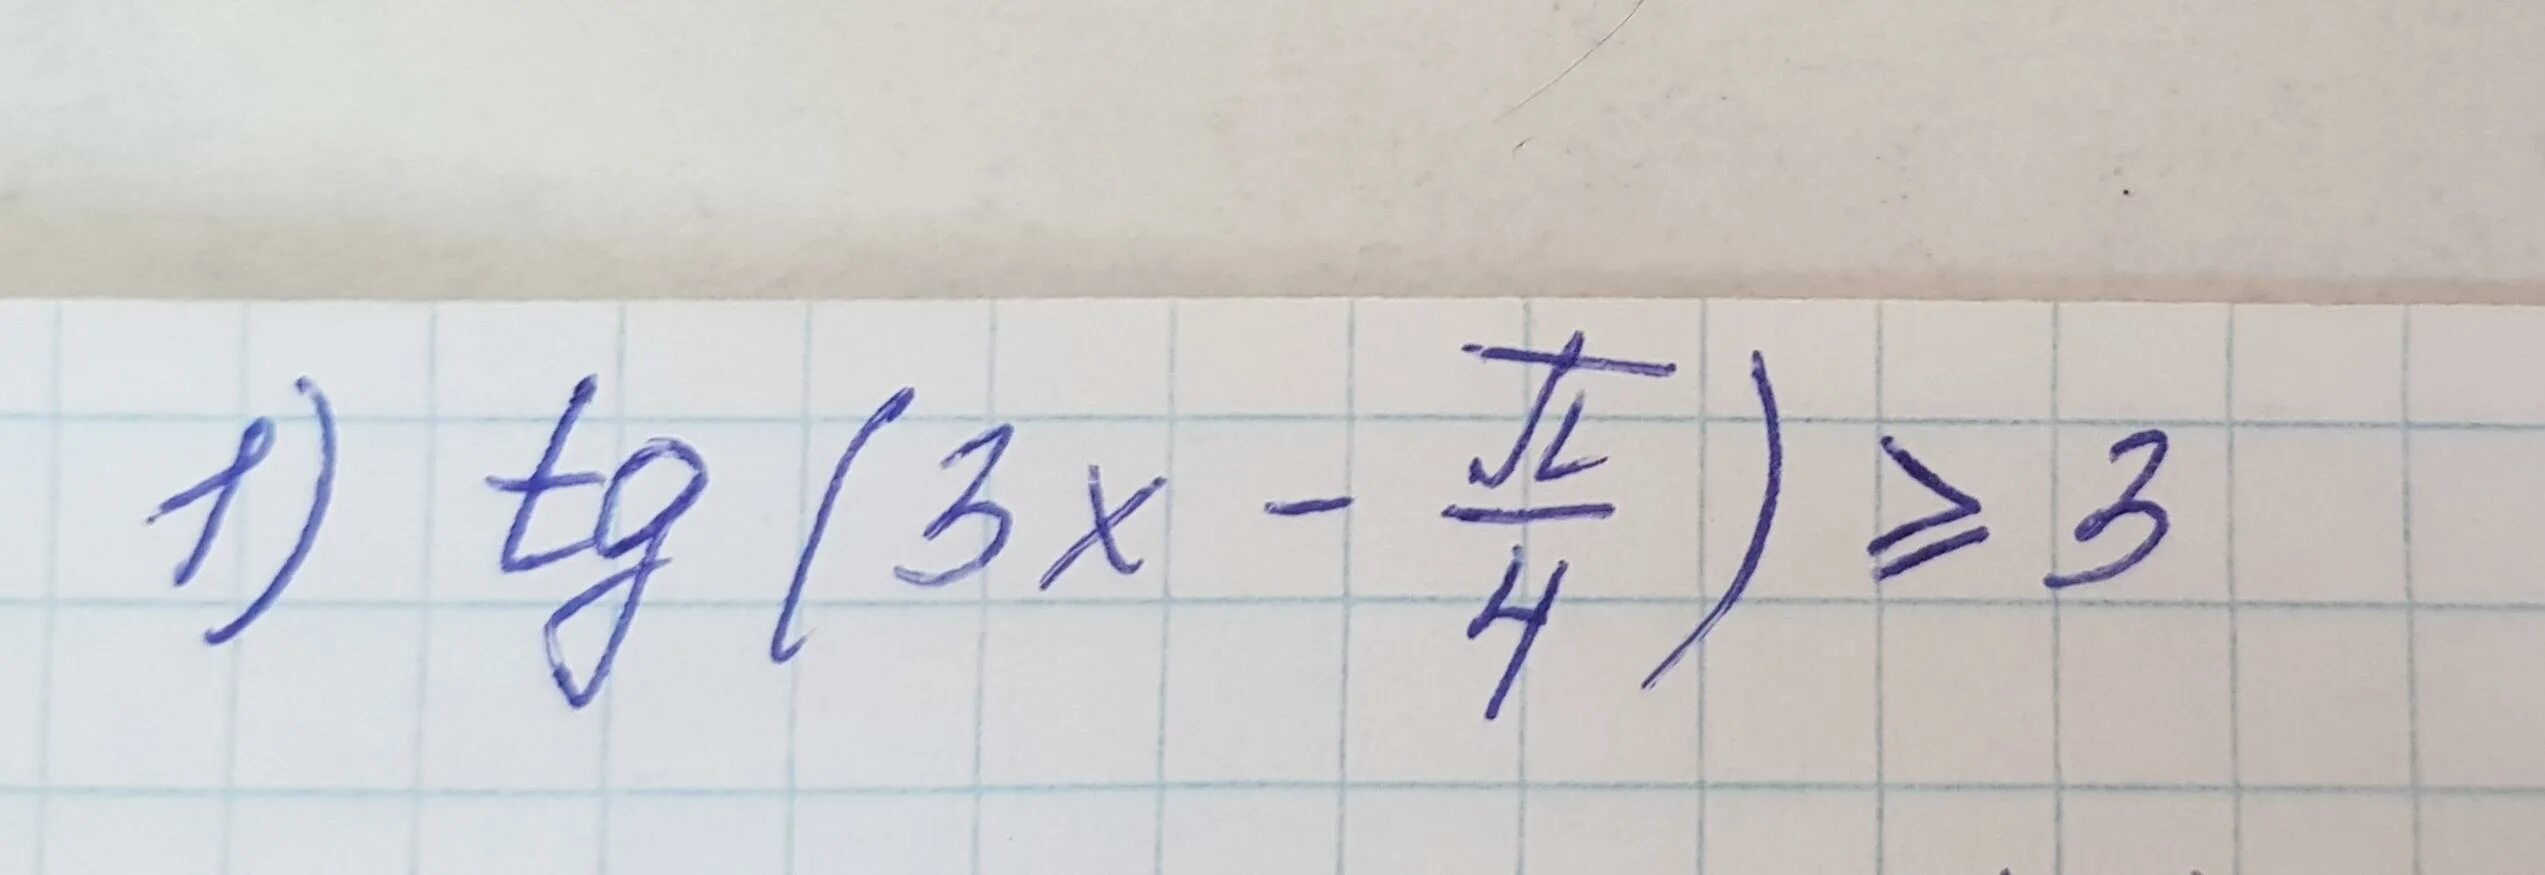 1) tg(3x - π/4) ≥ 3